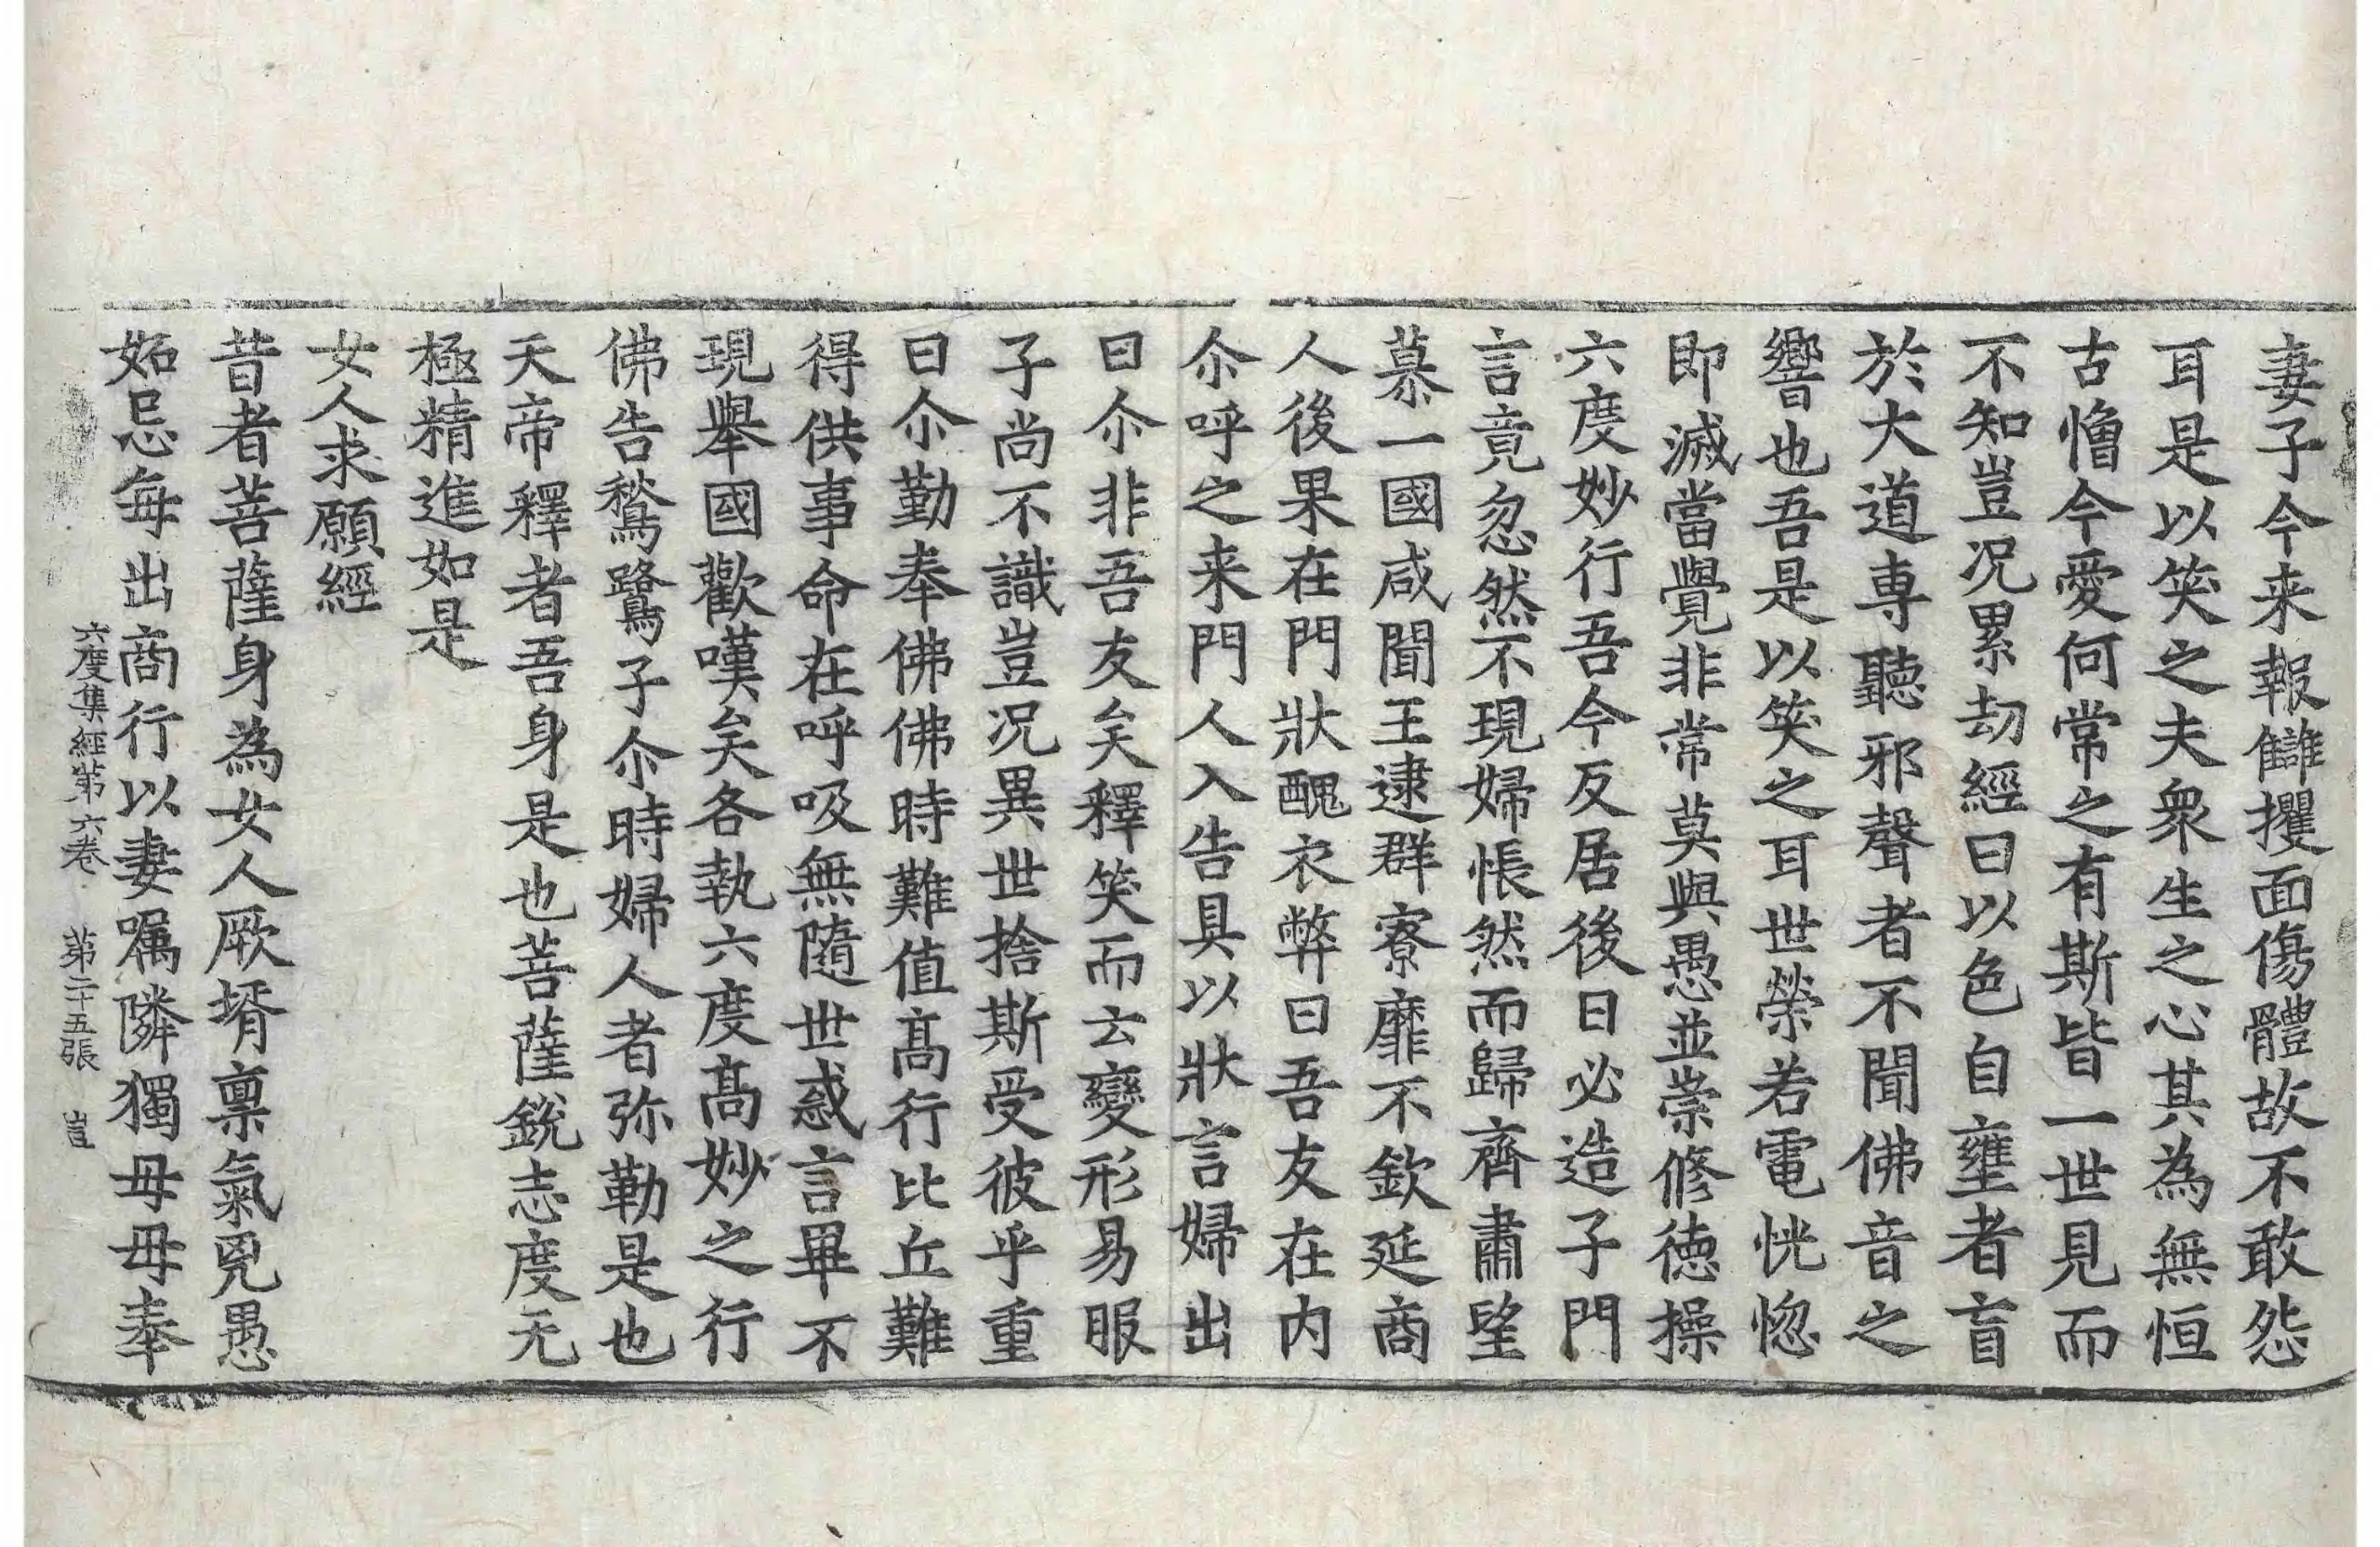 妻子今来報讎攫面傷體故不敢怨
耳是以笑之夫衆生之心其為無恒
古憎今愛何常之有斯皆一世見而
不知豈况累劫經曰以色自壅者盲
於大道専聽邪聲者不聞佛音之
響也吾是以笑之耳世榮若電恍惚
即滅當覺非常莫與愚並崇修德操
六度妙行吾今反居後日必造子門
言竟忽然不現婦悵然而歸齊肅望
慕一國咸聞王逮群寮靡不欽延商
人後果在門狀醜衣弊曰吾友在内
尒呼之来門人入告具以狀言婦出
曰尒非吾友矣釋笑而云變形易服
子尚不識豈况異世捨斯受彼乎重
曰尒勤奉佛佛時難值髙行比丘難
得供事命在呼吸無隨世惑言畢不
現舉國歡嘆矣各執六度髙妙之行
佛告鶖鷺子尒時婦人者弥勒是也
天帝釋者吾身是也菩薩銳志度无
極精進如是
女人求願經
昔者菩薩身為女人厥壻禀氣兇愚
妬忌每出商行以妻嘱隣獨母母奉
六度集經第六卷 第二十五張 豈